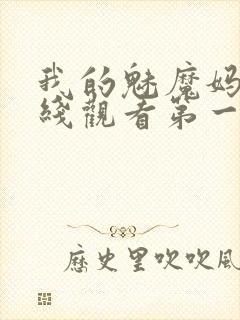 我的魅魔妈
綫觀看第一
歷史里吹吹風